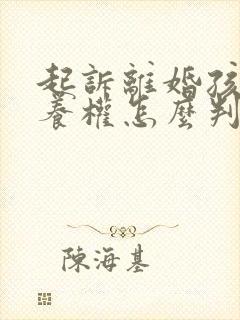 起訴離婚孩
養權怎麼判
陳海基